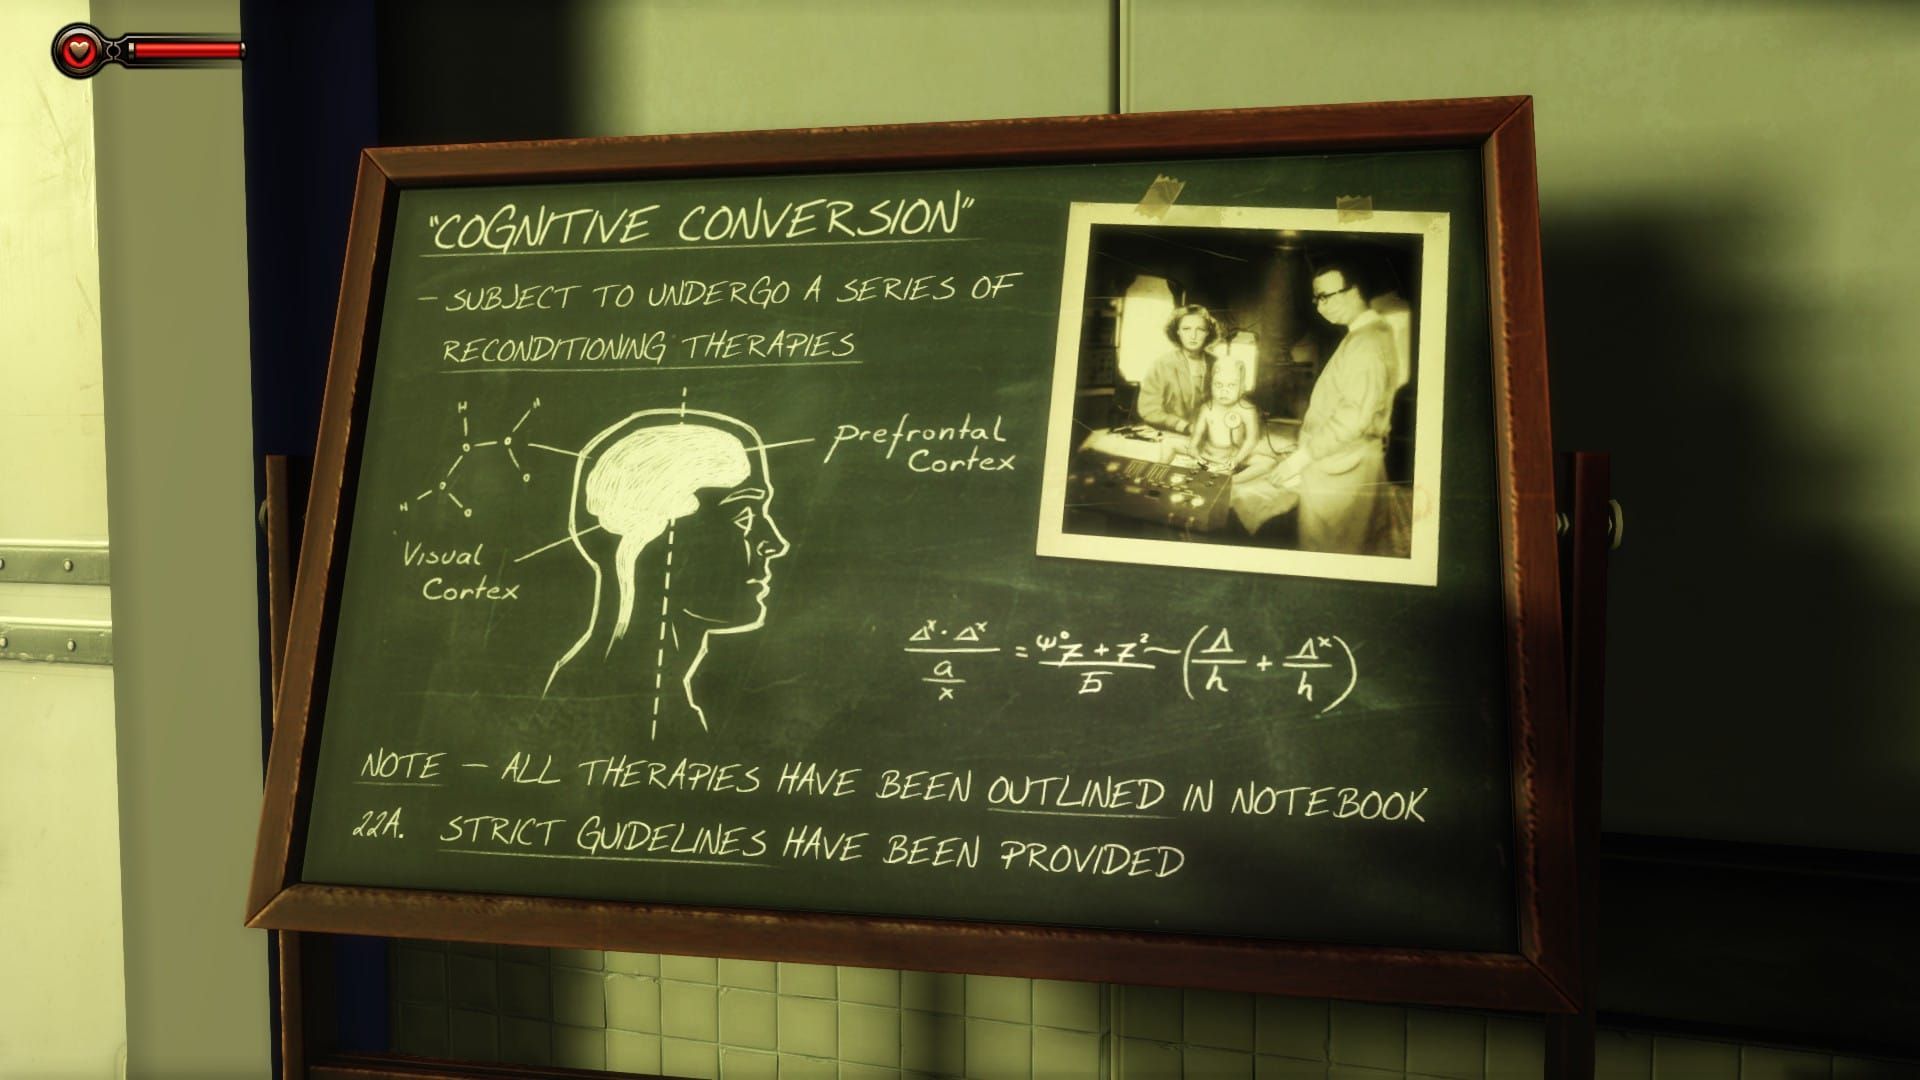 "COGNITIVE CONVERSION"
- SUBJECT TO UNDERGO A SERIES OF
RECONDITIONING THERAPIES
H
H
H
Prefrontal
Cortex
Visual
Cortex
NOTE - ALL THERAPIES HAVE BEEN OUTLINED IN NOTEBOOK
22A. STRICT GUIDELINES HAVE BEEN PROVIDED